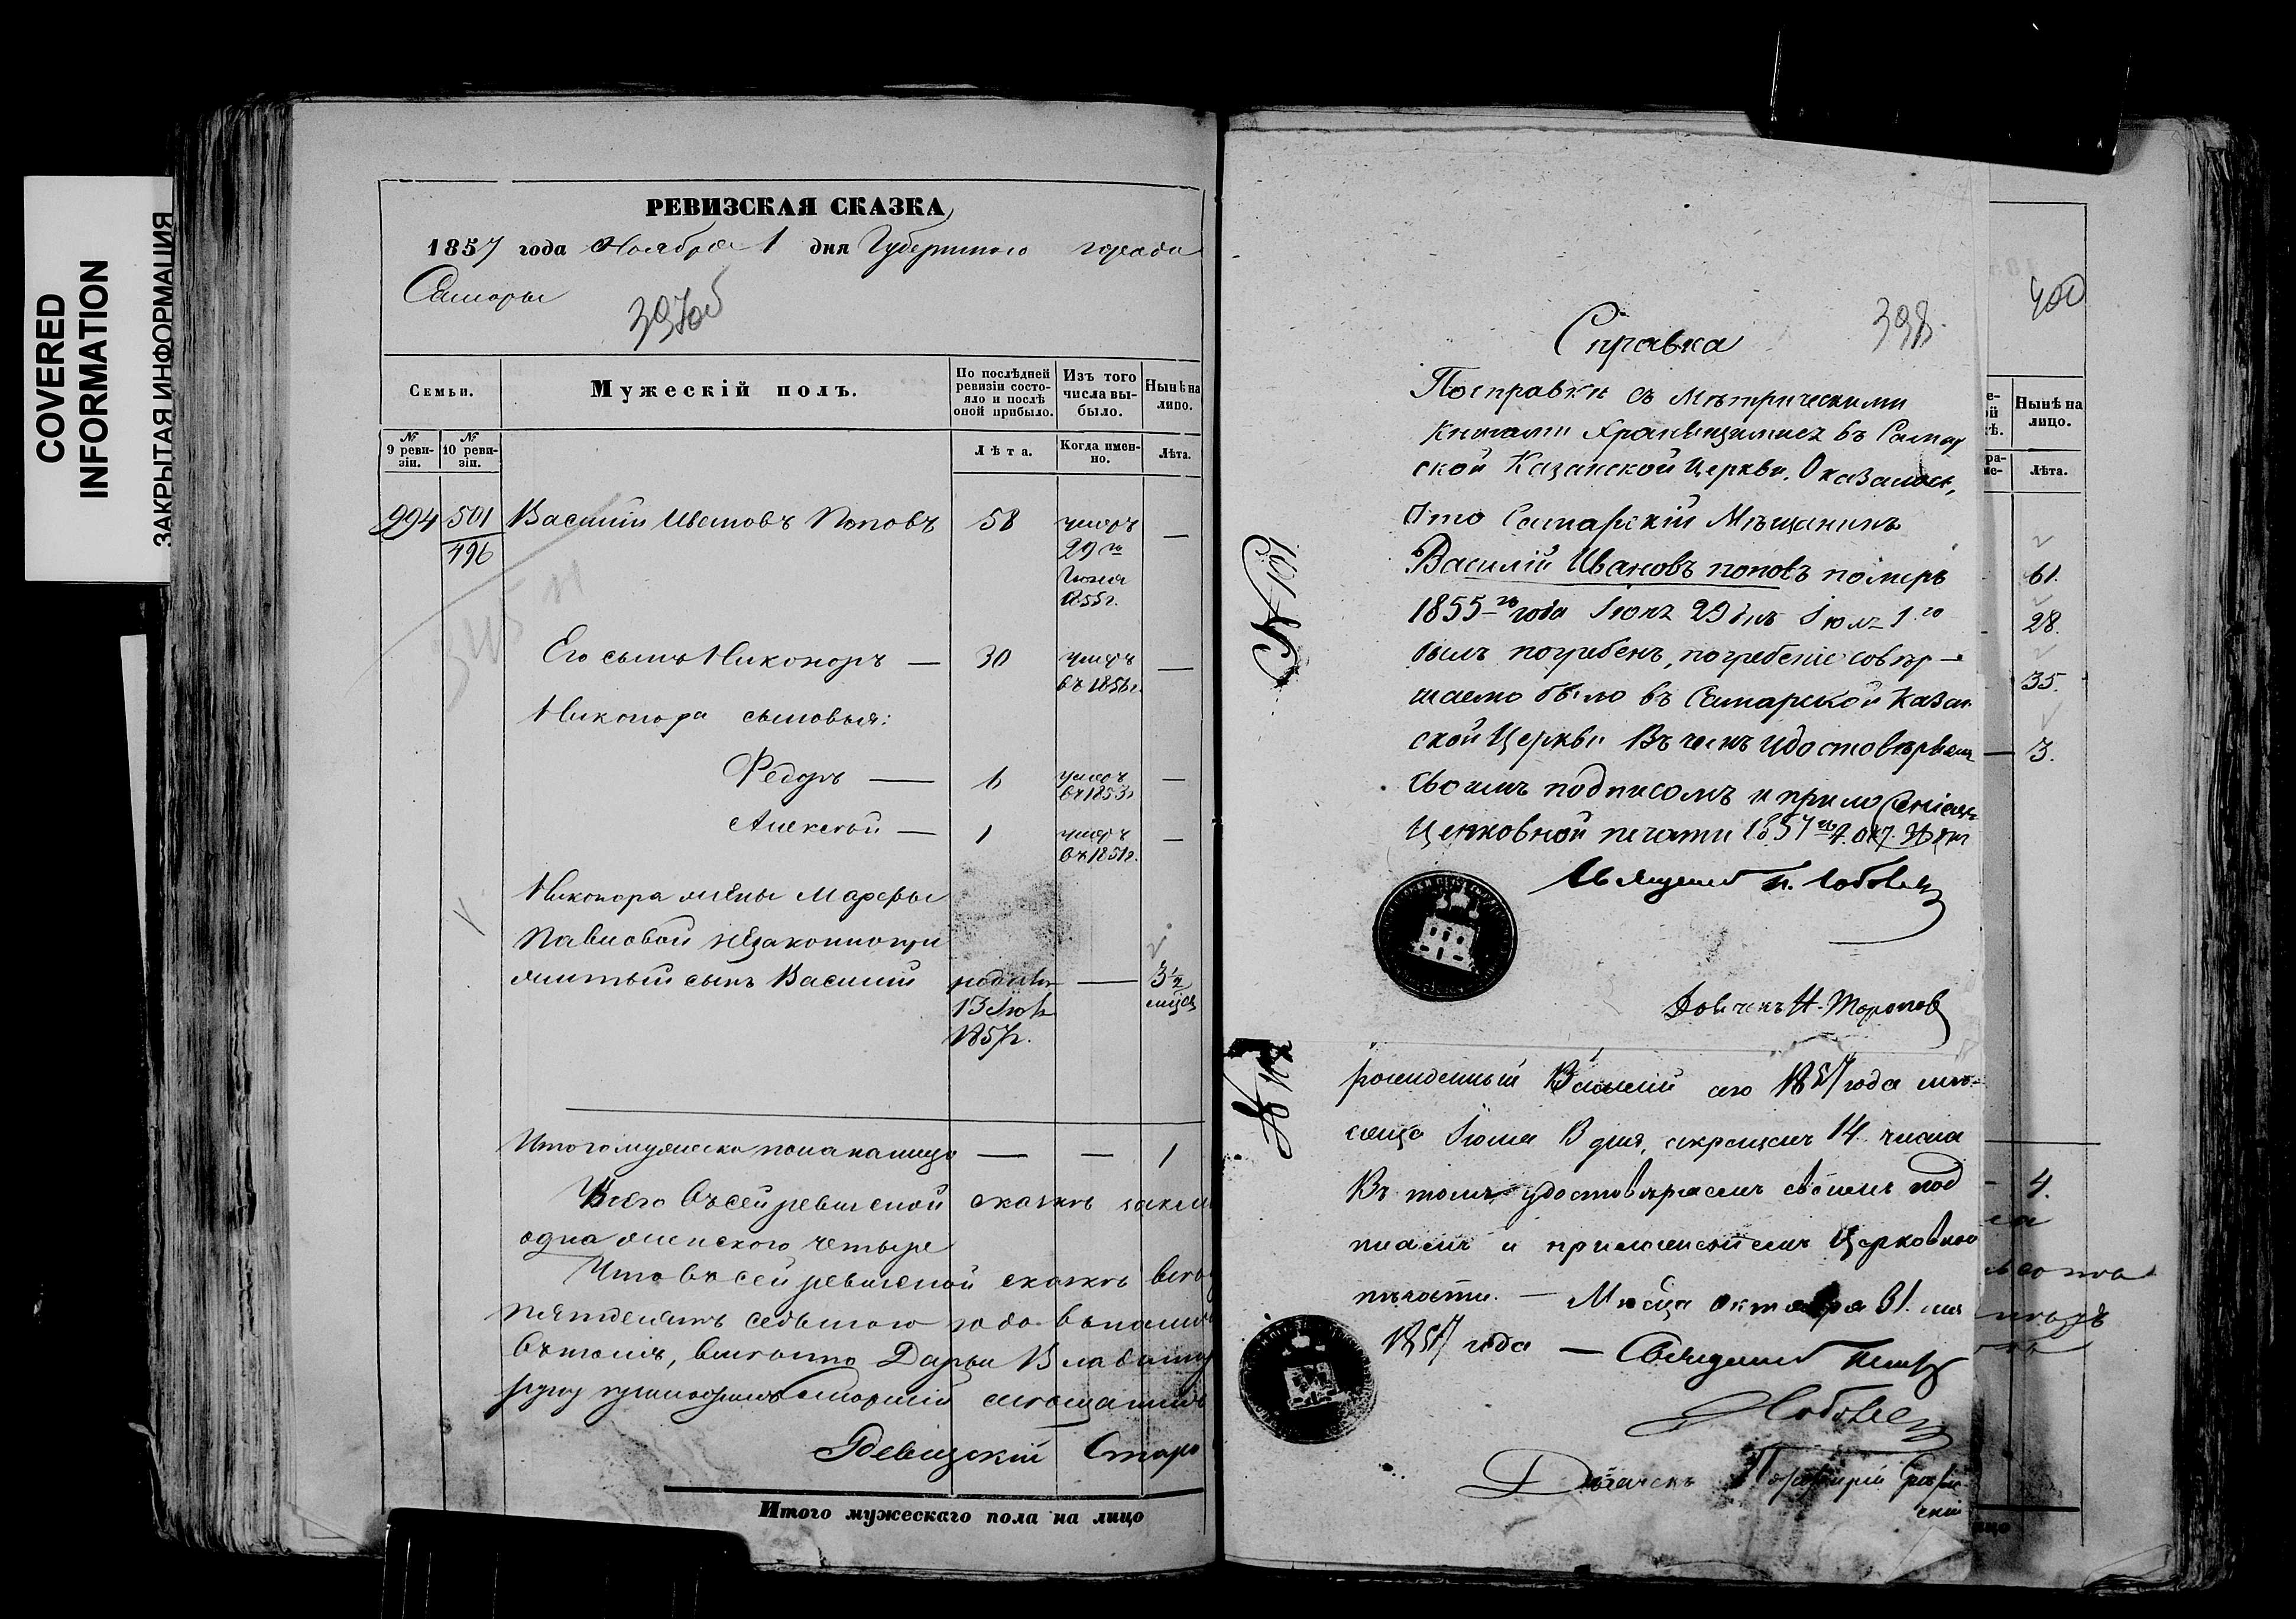 COVERED
INFORMATION
ЗАКРЫТАЯ ИНФОРМАЦИЯ
РЕВИЗСКАЯ СКАЗКА
1857 года Ноября 1 дня Губернского города
Самары
397об
Семьи.
Мужескій полъ.
По послѣдней ревизіи состояло и послѣ оной прибыло.
Изъ того числа выбыло.
Нынѣ на лицо.
№ 9 ревизіи.
№ 10 ревизіи.
Лѣта.
Когда именно.
Лѣта.
994 501 Василій Ивановъ Поповъ 58 умеръ —
496 29го
Іюня
1855г.
Его сынъ Никоноръ — 30 умеръ —
въ 1856г.
Никонора сыновья:
Федоръ — 6 умеръ —
въ 1853г.
Алексѣй — 1 умеръ —
въ 1851г.
Никонора жены Марфы
Павловой незаконнопри
житый сынъ Василій родил. — 3½
13 Іюля мѣсяц.
1857г.
Итого мужеска пола налицо — — 1
Всего въ сей ревизской сказкѣ заклю
одна женского четыре
Что въ сей ревизской сказкѣ всѣ
пятдесятъ седьмого года
въ томъ, вместо Дарьи Владимир
руку приложилъ Самарскій мѣщанинъ
Ревизскій Старо
Итого мужескаго пола на лицо
Справка
398
По справки съ метрическими
книгами хранящимися въ Самар
ской Казанской Церкви. Оказалось,
что Самарскій Мѣщанинъ
Василій Ивановъ поповъ померъ
1855го года Іюня 29 дня Іюля 1го
былъ погребенъ, погребеніе совер—
шаемо было въ Самарской Казан
ской Церкви. Въ чемъ удостовѣряемъ
своимъ подписомъ и приложеніемъ
Церковной печати 1857го г. Окт.
Священник П. Лобовъ
Дьячекъ Н. Торопов
рожденный Василій сего 1857 года мѣ-
сяца Іюля 13 дня, а крещенъ 14 числа
Въ томъ удостовѣряемъ своимъ под
писомъ и приложеніемъ Церковной
печати. — Мѣсяца Октября 31. дня
1857 года — Священник Петръ
Дьячекъ Порфирій
400
Нынѣ на лицо.
Лѣта.
61.
28.
35.
— 3.
4.